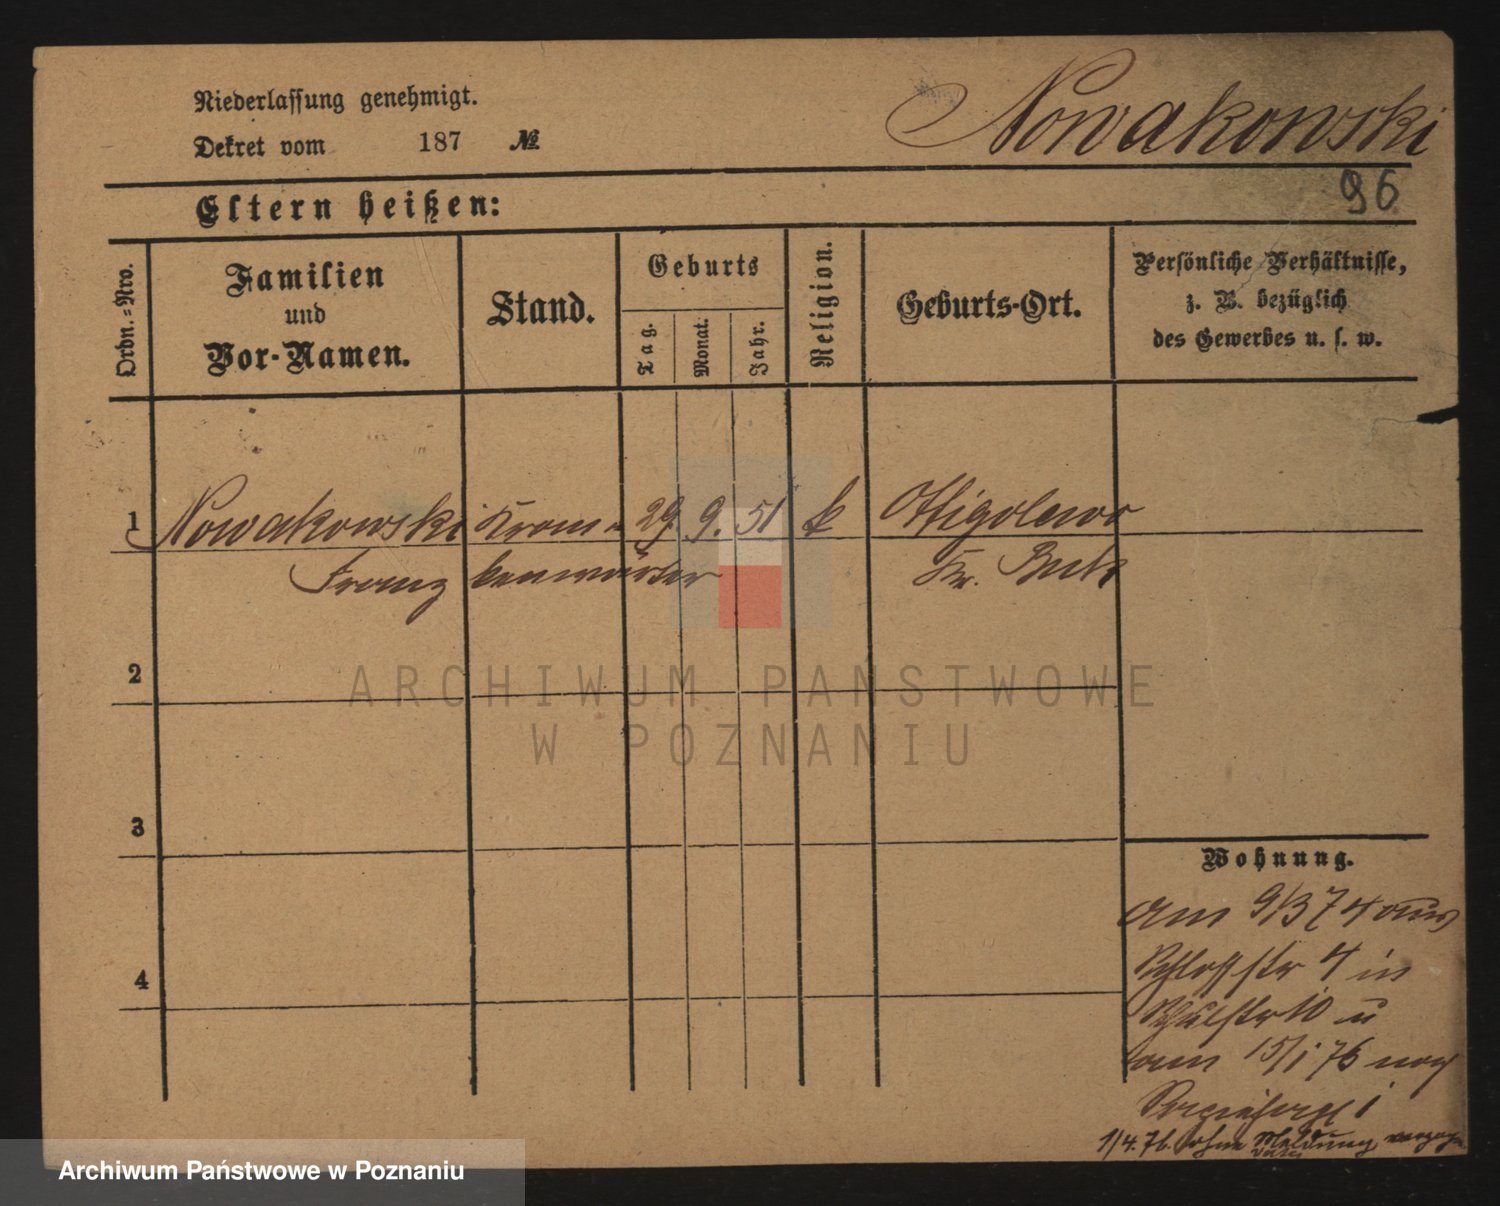 Niederlassung genehmigt.
Dekret vom 187 №
Nowakowski
96
Eltern heißen:
Ordn.=Nro.
Familien
und
Vor-Namen.
Stand.
Geburts
Tag.
Monat.
Jahr.
Religion.
Geburts-Ort.
Persönliche Verhältnisse,
z. B. bezüglich
des Gewerbes u. s. w.
1 Nowakowski Kran- 29. 9. 51 k
Franz kenwärter Kr. Buk
2
3
4
Wohnung.
am 9/3 74 aus
Schloßstr 4 in
Schulstr 10 u
am 15/1 76 nach
1
1/4. 76. ohne Meldung verzogen
ARCHIWUM PAŃSTWOWE
W POZNANIU
Archiwum Państwowe w Poznaniu